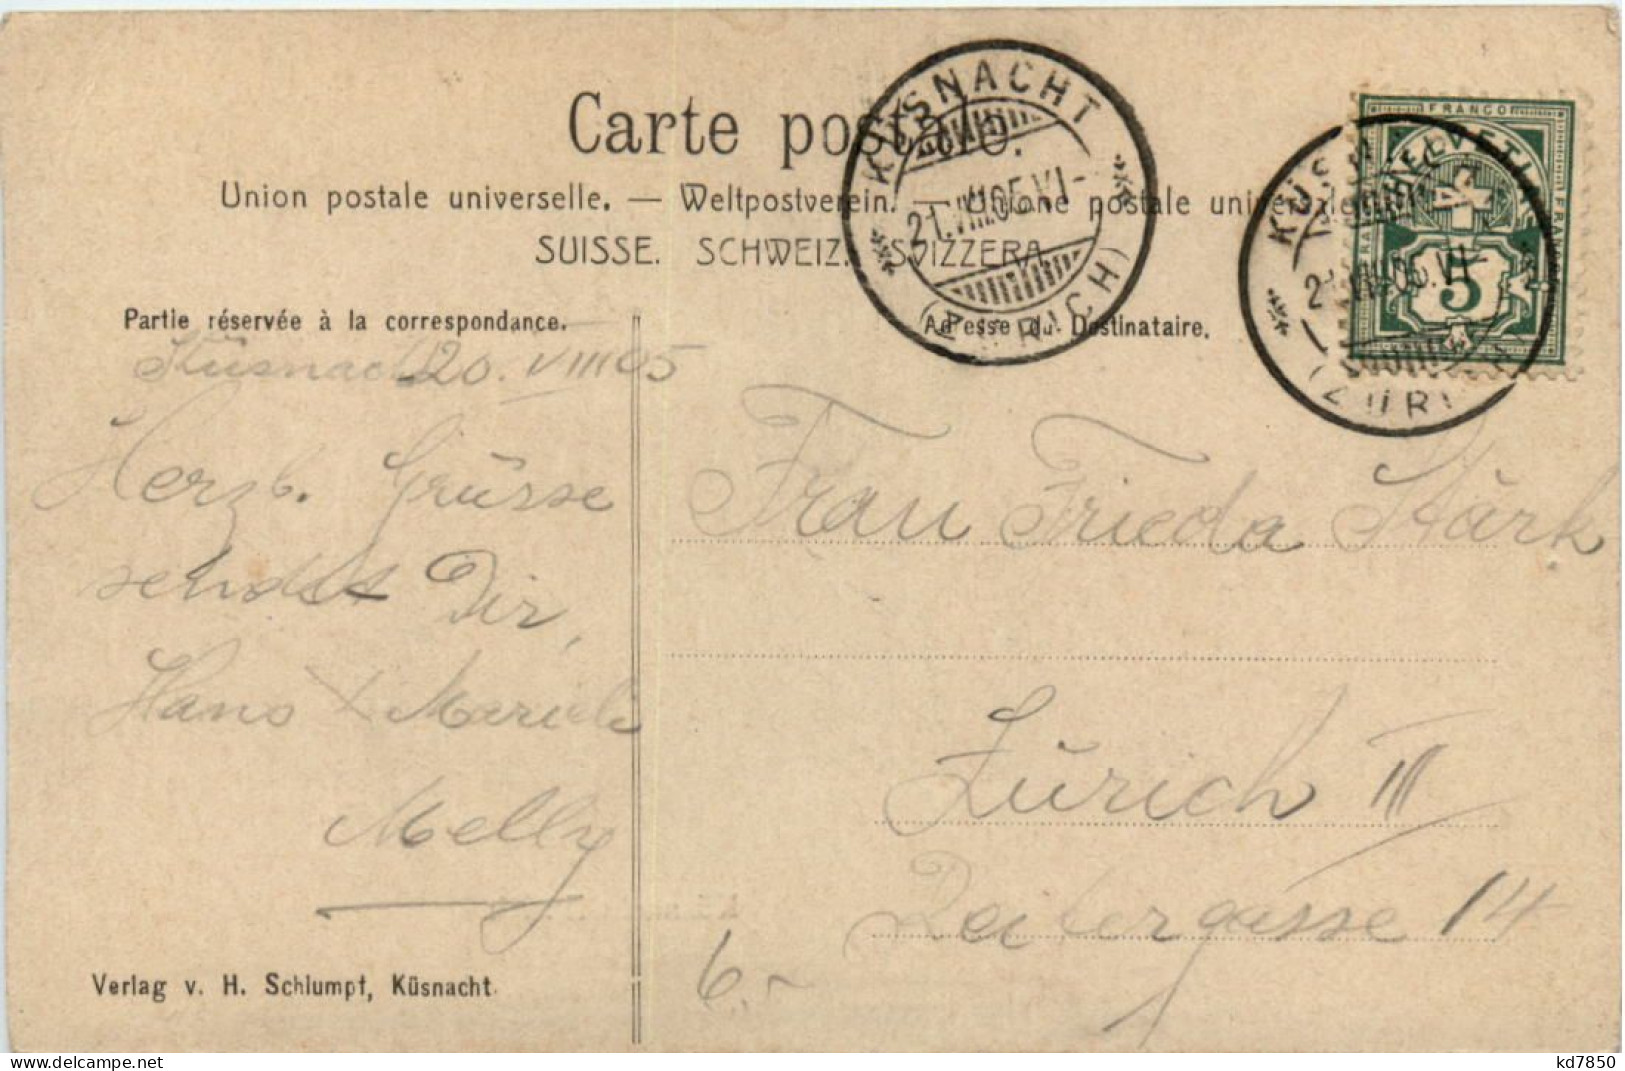 Carte postale.
Union postale universelle. — Weltpostverein. — Unione postale universale
SUISSE. SCHWEIZ. SVIZZERA.
KÜSNACHT
21.VIII.05.VI-
(ZÜRICH)
FRANCO
HELVETIA
5
KÜSN
05.VI-
(ZÜRI
Partie réservée à la correspondance.
Adresse du Destinataire.
Küsnacht 20. VIII 05
Herzl. Grüsse
sendet Dir,
Hans &
Melly
Frau Frieda Stärk
Zürich III
14
6.-
Verlag v. H. Schlumpf, Küsnacht.
www.delcampe.net
kd7850